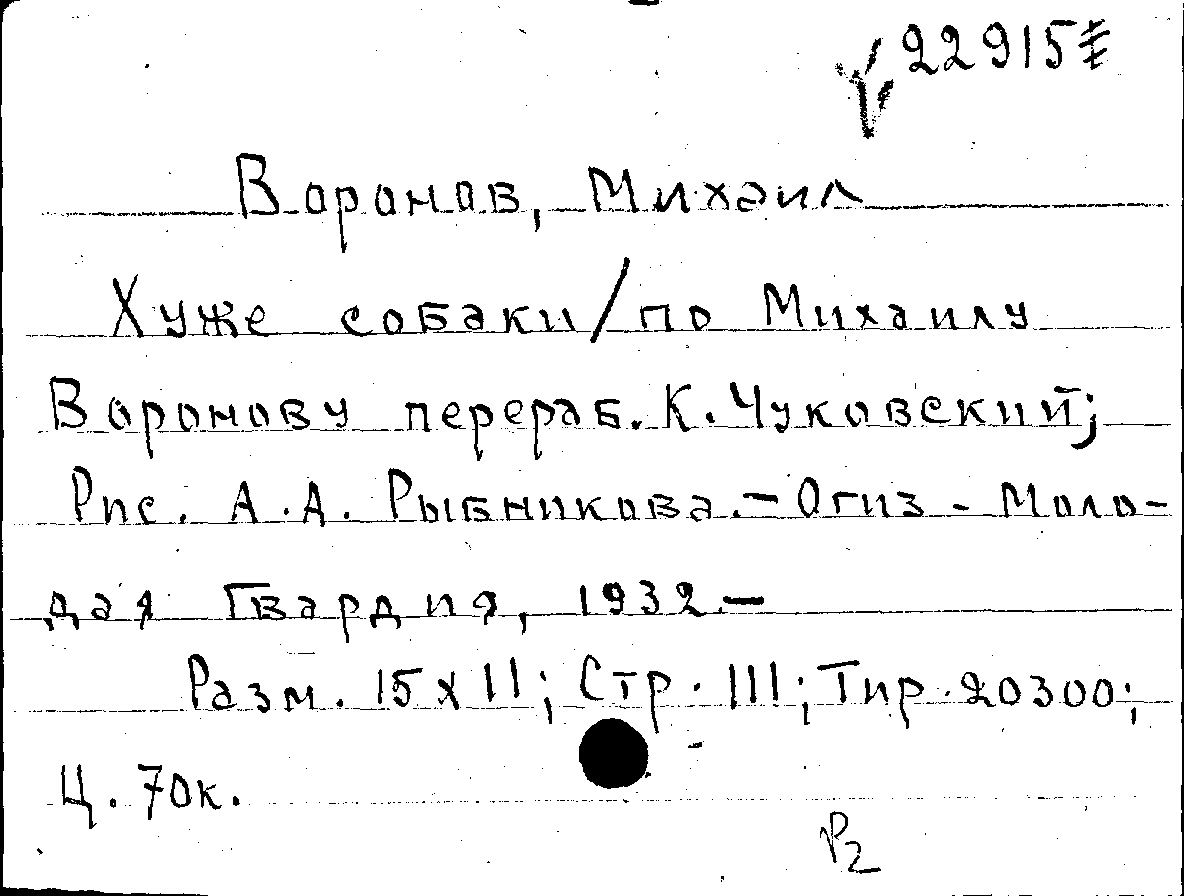 22915
Воронов, Михаил
Хуже собаки/по Михаилу
Воронову перераб. К. Чуковский;
Рис. А.А. Рыбникова.-Огиз-Моло-
дая Гвардия, 1932.-
Разм. 15х11; Стр. 111; Тир. 20300;
Ц. 70к.
Р2